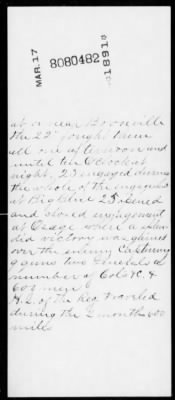 MAR. 17
8080482
1891
at or near Boonville
the 22" fought them
all one afternoon and
until ten O'clock at
night. 23 engaged during
the whole of the engagement
at Big Blue 25 opened
and closed engagement
at Osage when a splen
did victory was gained
over the enemy Capturing
9 guns two Generals a
number of Cols &c. &
600 men
H.Q. of the Reg traveled
during the 2 months 600
miles